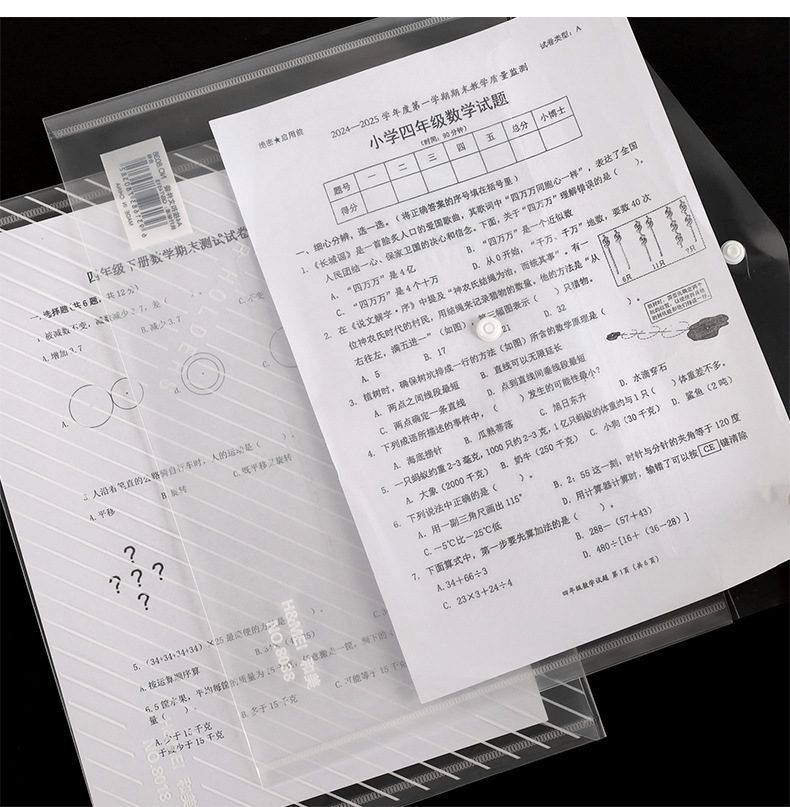 试卷类型：A
绝密★启用前
2024—2025 学年度第一学期期末教学质量监测
小学四年级数学试题
(时间：90 分钟)
题号 一 二 三 四 五 总分 小博士
得分
一、细心分辨，选一选。（将正确答案的序号填在括号里）
1.《长城谣》是一首脍炙人口的爱国歌曲，其歌词中“四万万同胞心一样”，表达了全国
人民团结一心、保家卫国的决心和信念。下面，关于“四万万”理解错误的是（ ）。
A. “四万万”是 4 亿 B. “四万万”是一个近似数
C. “四万万”是 4 个十万 D. 从 0 开始，“千万、千万”地数，要数 40 次
2. 在《说文解字·序》中提及“神农氏结绳为治，而统其事”。有一
位神农氏时代的村民，用结绳来记录猎物的数量。他的方法是“从
右往左，满五进一”（如图）。第三幅图表示（ ）只猎物。
A. 5 B. 17 21 D. 32
6只 11只 ?只
3. 植树时，确保树坑排成一行的方法（如图）所含的数学原理是（ ）。
A. 两点之间线段最短 B. 直线可以无限延长
C. 两点确定一条直线 D. 点到直线间垂线段最短
4. 下列成语所描述的事件中，（ ）发生的可能性最小？
A. 海底捞针 B. 瓜熟蒂落 C. 旭日东升 D. 水滴穿石
5. 一只蚂蚁约重 2-3 毫克，1000 只约 2-3 克，1 亿只蚂蚁的体重约与 1 只（ ）体重差不多。
A. 大象（2000 千克） B. 奶牛（250 千克） C. 小狗（30 千克） D. 鲨鱼（2 吨）
6. 下列说法中正确的是（ ）。
A. 用一副三角尺画出 115° B. 2：55 这一刻，时针与分针的夹角等于 120 度
C. -5℃比-25℃低 D. 用计算器计算时，输错了可以按 CE 键清除
7. 下面算式中，第一步要先算加法的是（ ）。
A. 34+66÷3 B. 288-（57+43）
C. 23×3+24÷4 D. 480÷[16+（36-28）]
四年级数学试题 第 1 页（共 6 页）
四年级下册数学期末测试试卷
一. 选择题(共 6 题，共 12 分)
被减数不变，减数减少 3.7，差（
A. 增加 3.7 B. 减少 3.7 C. 不变
A. d. C.
人沿着笔直的公路骑自行车时，人的运动是（ ）。
A. 平移 B 旋转 C. 既平移又旋转
? ? ? ? ?
5. （34+34+34+34）×25 最简便的方法是（ ）。
A. 按运算顺序算
6. 5 筐苹果，平均每筐的质量为 15 千克
量（ ）.
A. 少于 15 千克 B. 多于 15 千克 C. 可能等于 15 千克
于或少于 15 千克
H&MEI 和美
NO.8038
H&MEI 和美
NO.8018